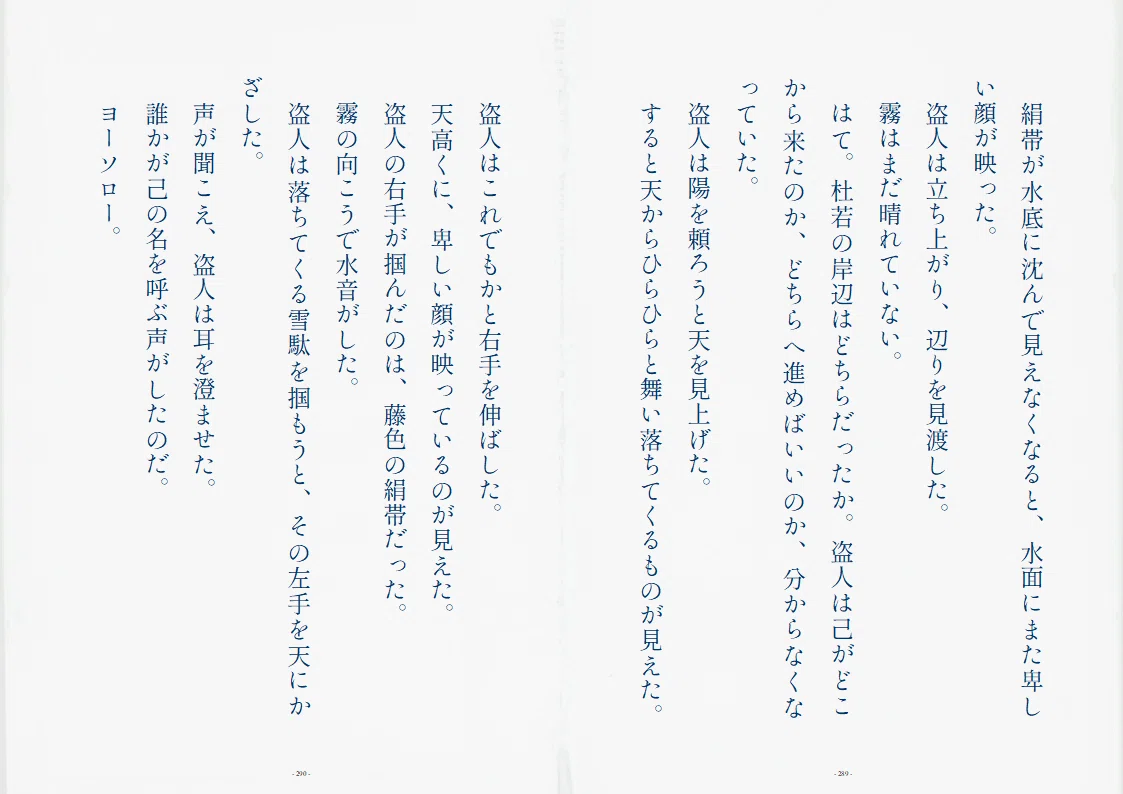 絹帯が水底に沈んで見えなくなると、水面にまた卑し
い顔が映った。
盗人は立ち上がり、辺りを見渡した。
霧はまだ晴れていない。
はて。杜若の岸辺はどちらだったか。盗人は己がどこ
から来たのか、どちらへ進めばいいのか、分からなくな
っていた。
盗人は陽を頼ろうと天を見上げた。
すると天からひらひらと舞い落ちてくるものが見えた。
- 289 -
盗人はこれでもかと右手を伸ばした。
天高くに、卑しい顔が映っているのが見えた。
盗人の右手が掴んだのは、藤色の絹帯だった。
霧の向こうで水音がした。
盗人は落ちてくる雪駄を掴もうと、その左手を天にか
ざした。
声が聞こえ、盗人は耳を澄ませた。
誰かが己の名を呼ぶ声がしたのだ。
ヨーソロー。
- 290 -